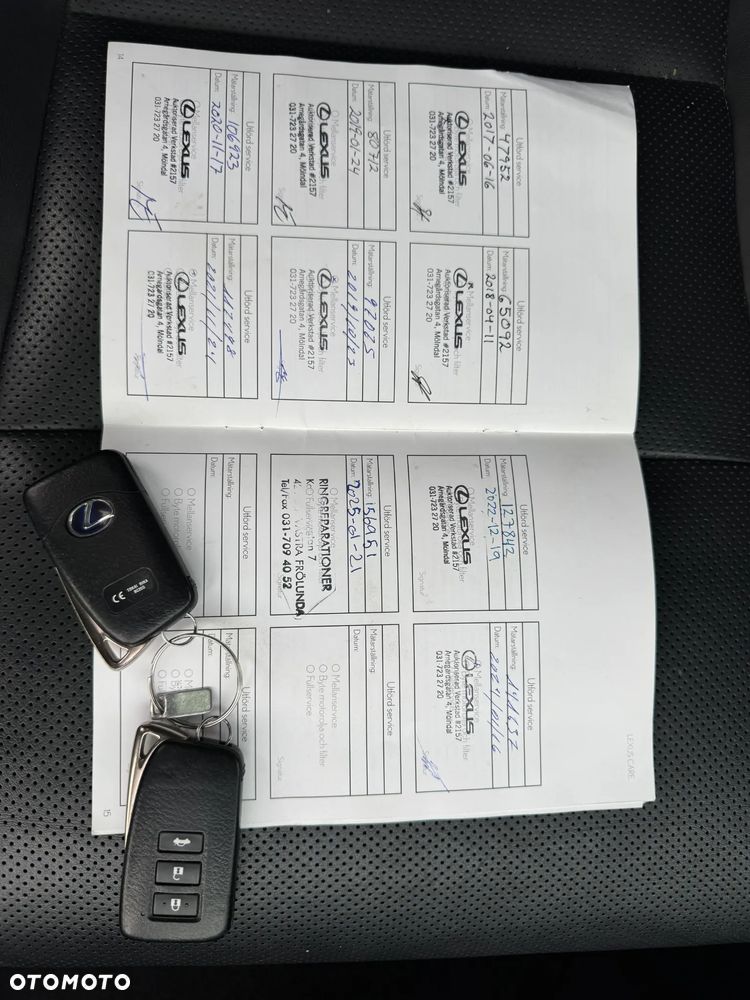 14
Utförd service
Mätarställning: 47952
Datum: 2017-06-16
LEXUS
Auktoriserad Verkstad #2157
Arnegårdsgatan 4, Mölndal
031-723 27 20
Utförd service
Mätarställning: 65092
Datum: 2018-04-11
Mellanservice
LEXUS
Auktoriserad Verkstad #2157
Arnegårdsgatan 4, Mölndal
031-723 27 20
Utförd service
Mätarställning: 80712
Datum: 2019-01-24
Mellanservice
LEXUS
Auktoriserad Verkstad #2157
Arnegårdsgatan 4, Mölndal
031-723 27 20
Utförd service
Mätarställning: 92025
Datum: 2019/10/23
Mellanservice
LEXUS
Auktoriserad Verkstad #2157
Arnegårdsgatan 4, Mölndal
031-723 27 20
Utförd service
Mätarställning: 106923
Datum: 2020-11-17
Mellanservice
LEXUS
Auktoriserad Verkstad #2157
Arnegårdsgatan 4, Mölndal
031-723 27 20
Utförd service
Mätarställning:
Datum: 2021/11/24
Mellanservice
LEXUS
Auktoriserad Verkstad #2157
Arnegårdsgatan 4, Mölndal
031-723 27 20
LEXUS CARE
Utförd service
Mätarställning: 127842
Datum: 2022-12-19
Mellanservice
LEXUS
Auktoriserad Verkstad #2157
Arnegårdsgatan 4, Mölndal
031-723 27 20
Signatur
Utförd service
Mätarställning: 141652
Datum: 2024/01/16
Mellanservice
LEXUS
Auktoriserad Verkstad #2157
Arnegårdsgatan 4, Mölndal
031-723 27 20
Utförd service
Mätarställning: 156051
Datum: 2025-01-21
Mellanservice
RINGREPARATIONER
Fullservice
7
VÄSTRA FRÖLUNDA
Tel/Fax 031-709 40 52
Signatur
Utförd service
Mätarställning:
Datum:
Mellanservice
Byte motorolja och filter
Fullservice
Signatur
Utförd service
Mätarställning:
Datum:
Mellanservice
Fullservice
Utförd service
Mätarställning:
15
CE
OTOMOTO